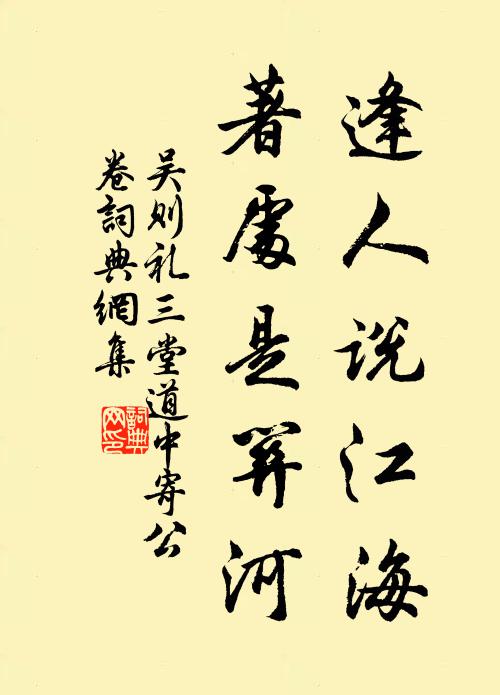 逢人说江海
著處是関河
吴则礼三堂道中寄公
卷詞典網集
詞典网印